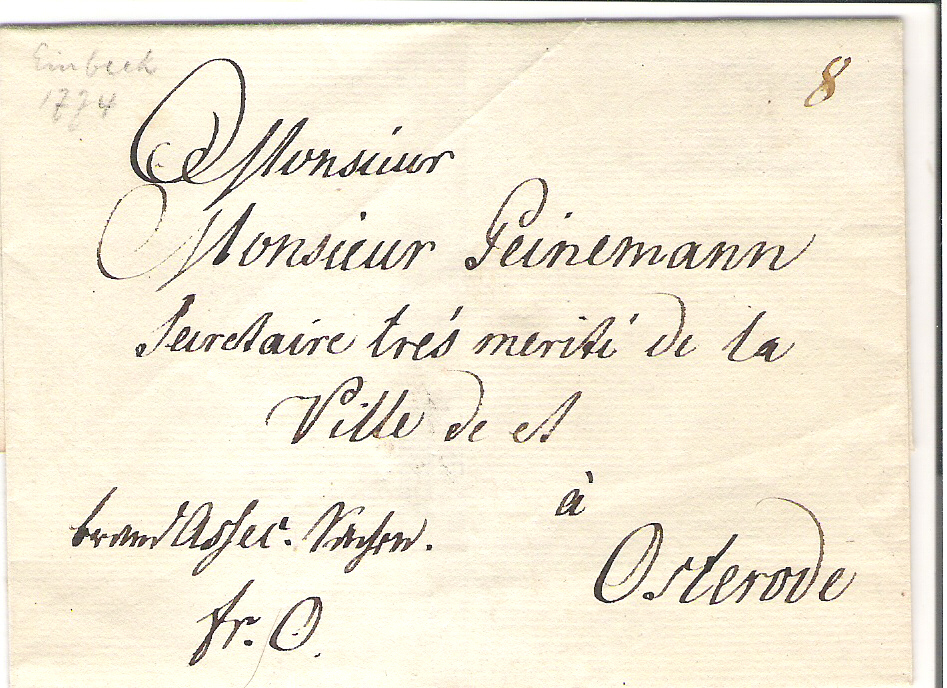 Einbeck
1774
8
Monsieur
Monsieur Peinemann
Secretaire trés merité de la
Ville de et
à
Osterode
brand Assec. Sachen.
fr. O.